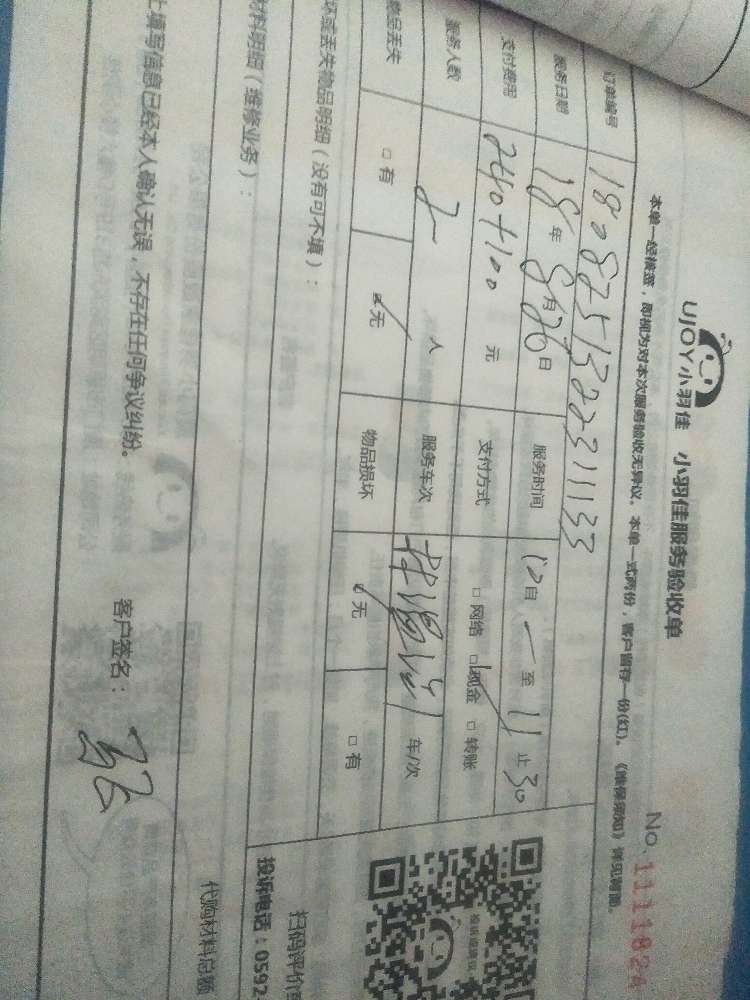 UJOY小羽佳 小羽佳服务验收单
No. 1111824
本单一经核签，即视为对本次服务验收无异议。本单一式两份，客户留存一份(红)。《维保须知》详见背面。
订单编号 180875132231133
服务日期 18年8月26日 服务时间 10自一至11止30
支付费用 240+100 元 支付方式 □网络 □现金 □转账
服务人数 2 人 服务车次 车/次
物品丢失 □有 □无 物品损坏 □无 □有
坏或丢失物品明细（没有可不填）：
材料明细（维修业务）：
扫码评价
投诉电话：0592
代购材料总额
上填写信息已经本人确认无误，不存在任何争议纠纷。 客户签名：